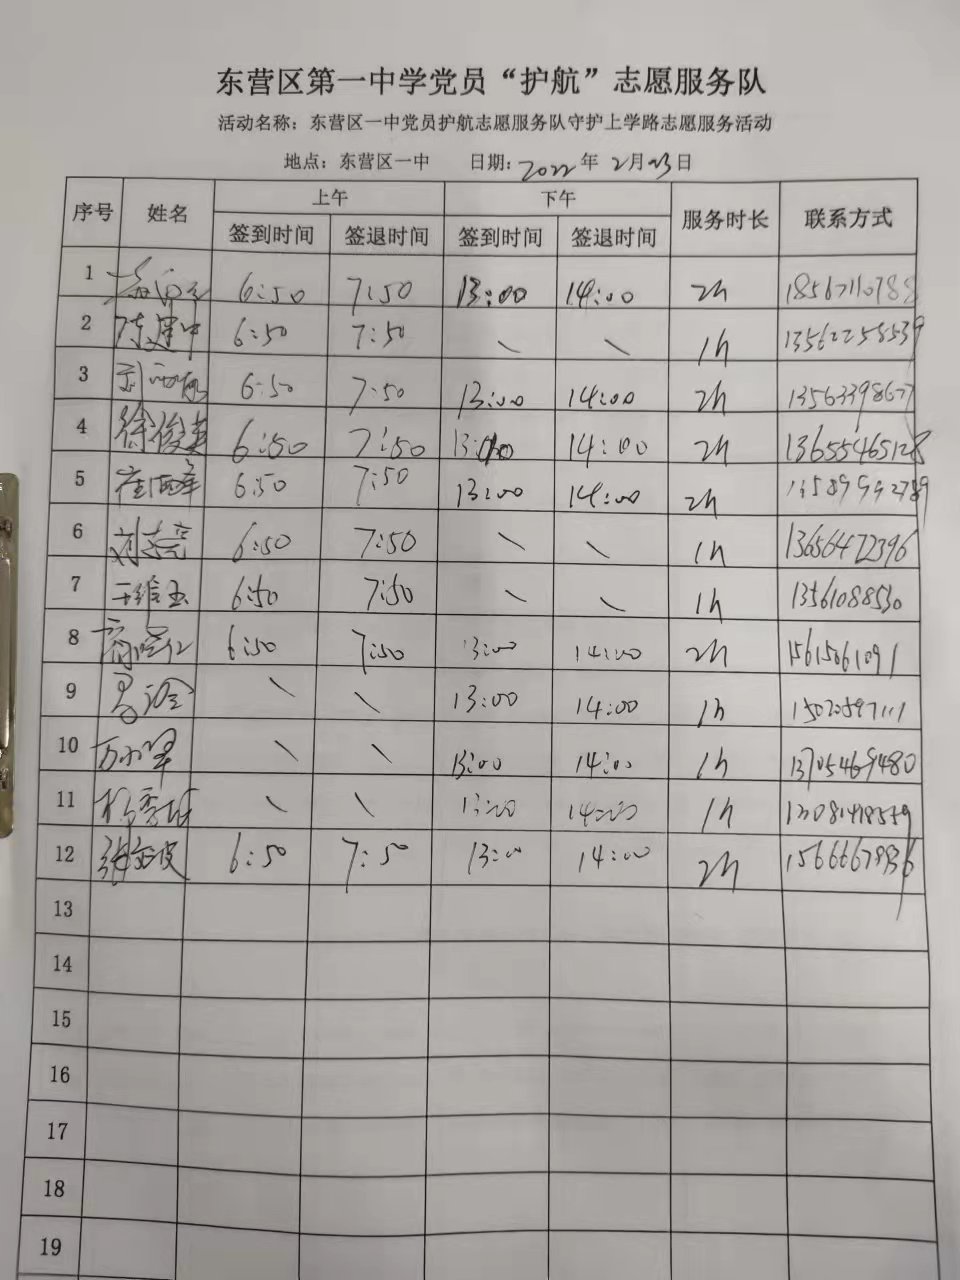 东营区第一中学党员“护航”志愿服务队
活动名称：东营区一中党员护航志愿服务队守护上学路志愿服务活动
地点：东营区一中 日期：2022年2月23日
序号 姓名 上午 下午 服务时长 联系方式
签到时间 签退时间 签到时间 签退时间
1 6:50 7:50 13:00 14:00 2h 18567110788
2 陈建中 6:50 7:50 \ \ 1h 13562258539
3 6:50 7:50 13:00 14:00 2h 13563398677
4 徐俊英 6:50 7:50 13:00 14:00 2h 13655465128
5 6:50 7:50 13:00 14:00 2h
6 6:50 7:50 \ \ 1h 13656472396
7 王维玉 6:50 7:50 \ \ 1h 13561088530
8 6:50 7:50 13:00 14:00 2h 15615061091
9 \ \ 13:00 14:00 1h
10 \ \ 13:00 14:00 1h 13705469480
11 \ \ 13:00 14:00 1h
12 6:50 7:50 13:00 14:00 2h
13
14
15
16
17
18
19